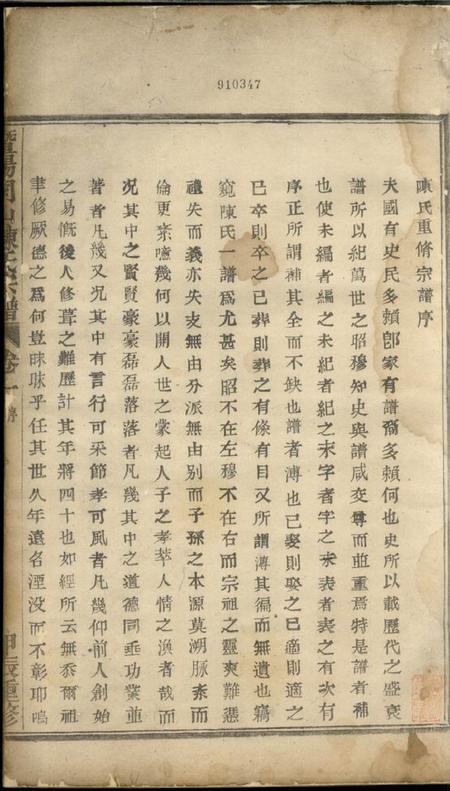 910347
陳氏重脩宗譜序
夫國有史民多賴卽家有譜裔多賴何也史所以載歷代之盛衰
譜所以紀萬世之昭穆知史與譜咸交尊而並重焉特是譜者補
也使未編者編之未紀者紀之未字者字之未表者表之有次有
序正所謂補其全而不缺也譜者溥也已娶則娶之已適則適之
已卒則卒之已葬則葬之有條有目又所謂溥其徧而無遺也竊
窺陳氏一譜爲尤甚矣昭不在左穆不在右而宗祖之靈爽難慿
禮失而義亦失支無由分派無由别而子孫之本源莫溯脉紊而
倫更紊噫幾何以開人世之蒙起人子之孝萃人情之渙者哉而
况其中之賢賢豪豪磊磊落落者凡幾其中之道德同垂功業並
著者凡幾又况其中有言行可采節孝可風者凡幾仰前人創始
之易慨後人修葺之難歷計其年將四十也如經所云無忝爾祖
聿修厥德之爲何豈昧昧乎任其世久年遠名湮没而不彰耶嗚
宗譜
卷一
序
重修